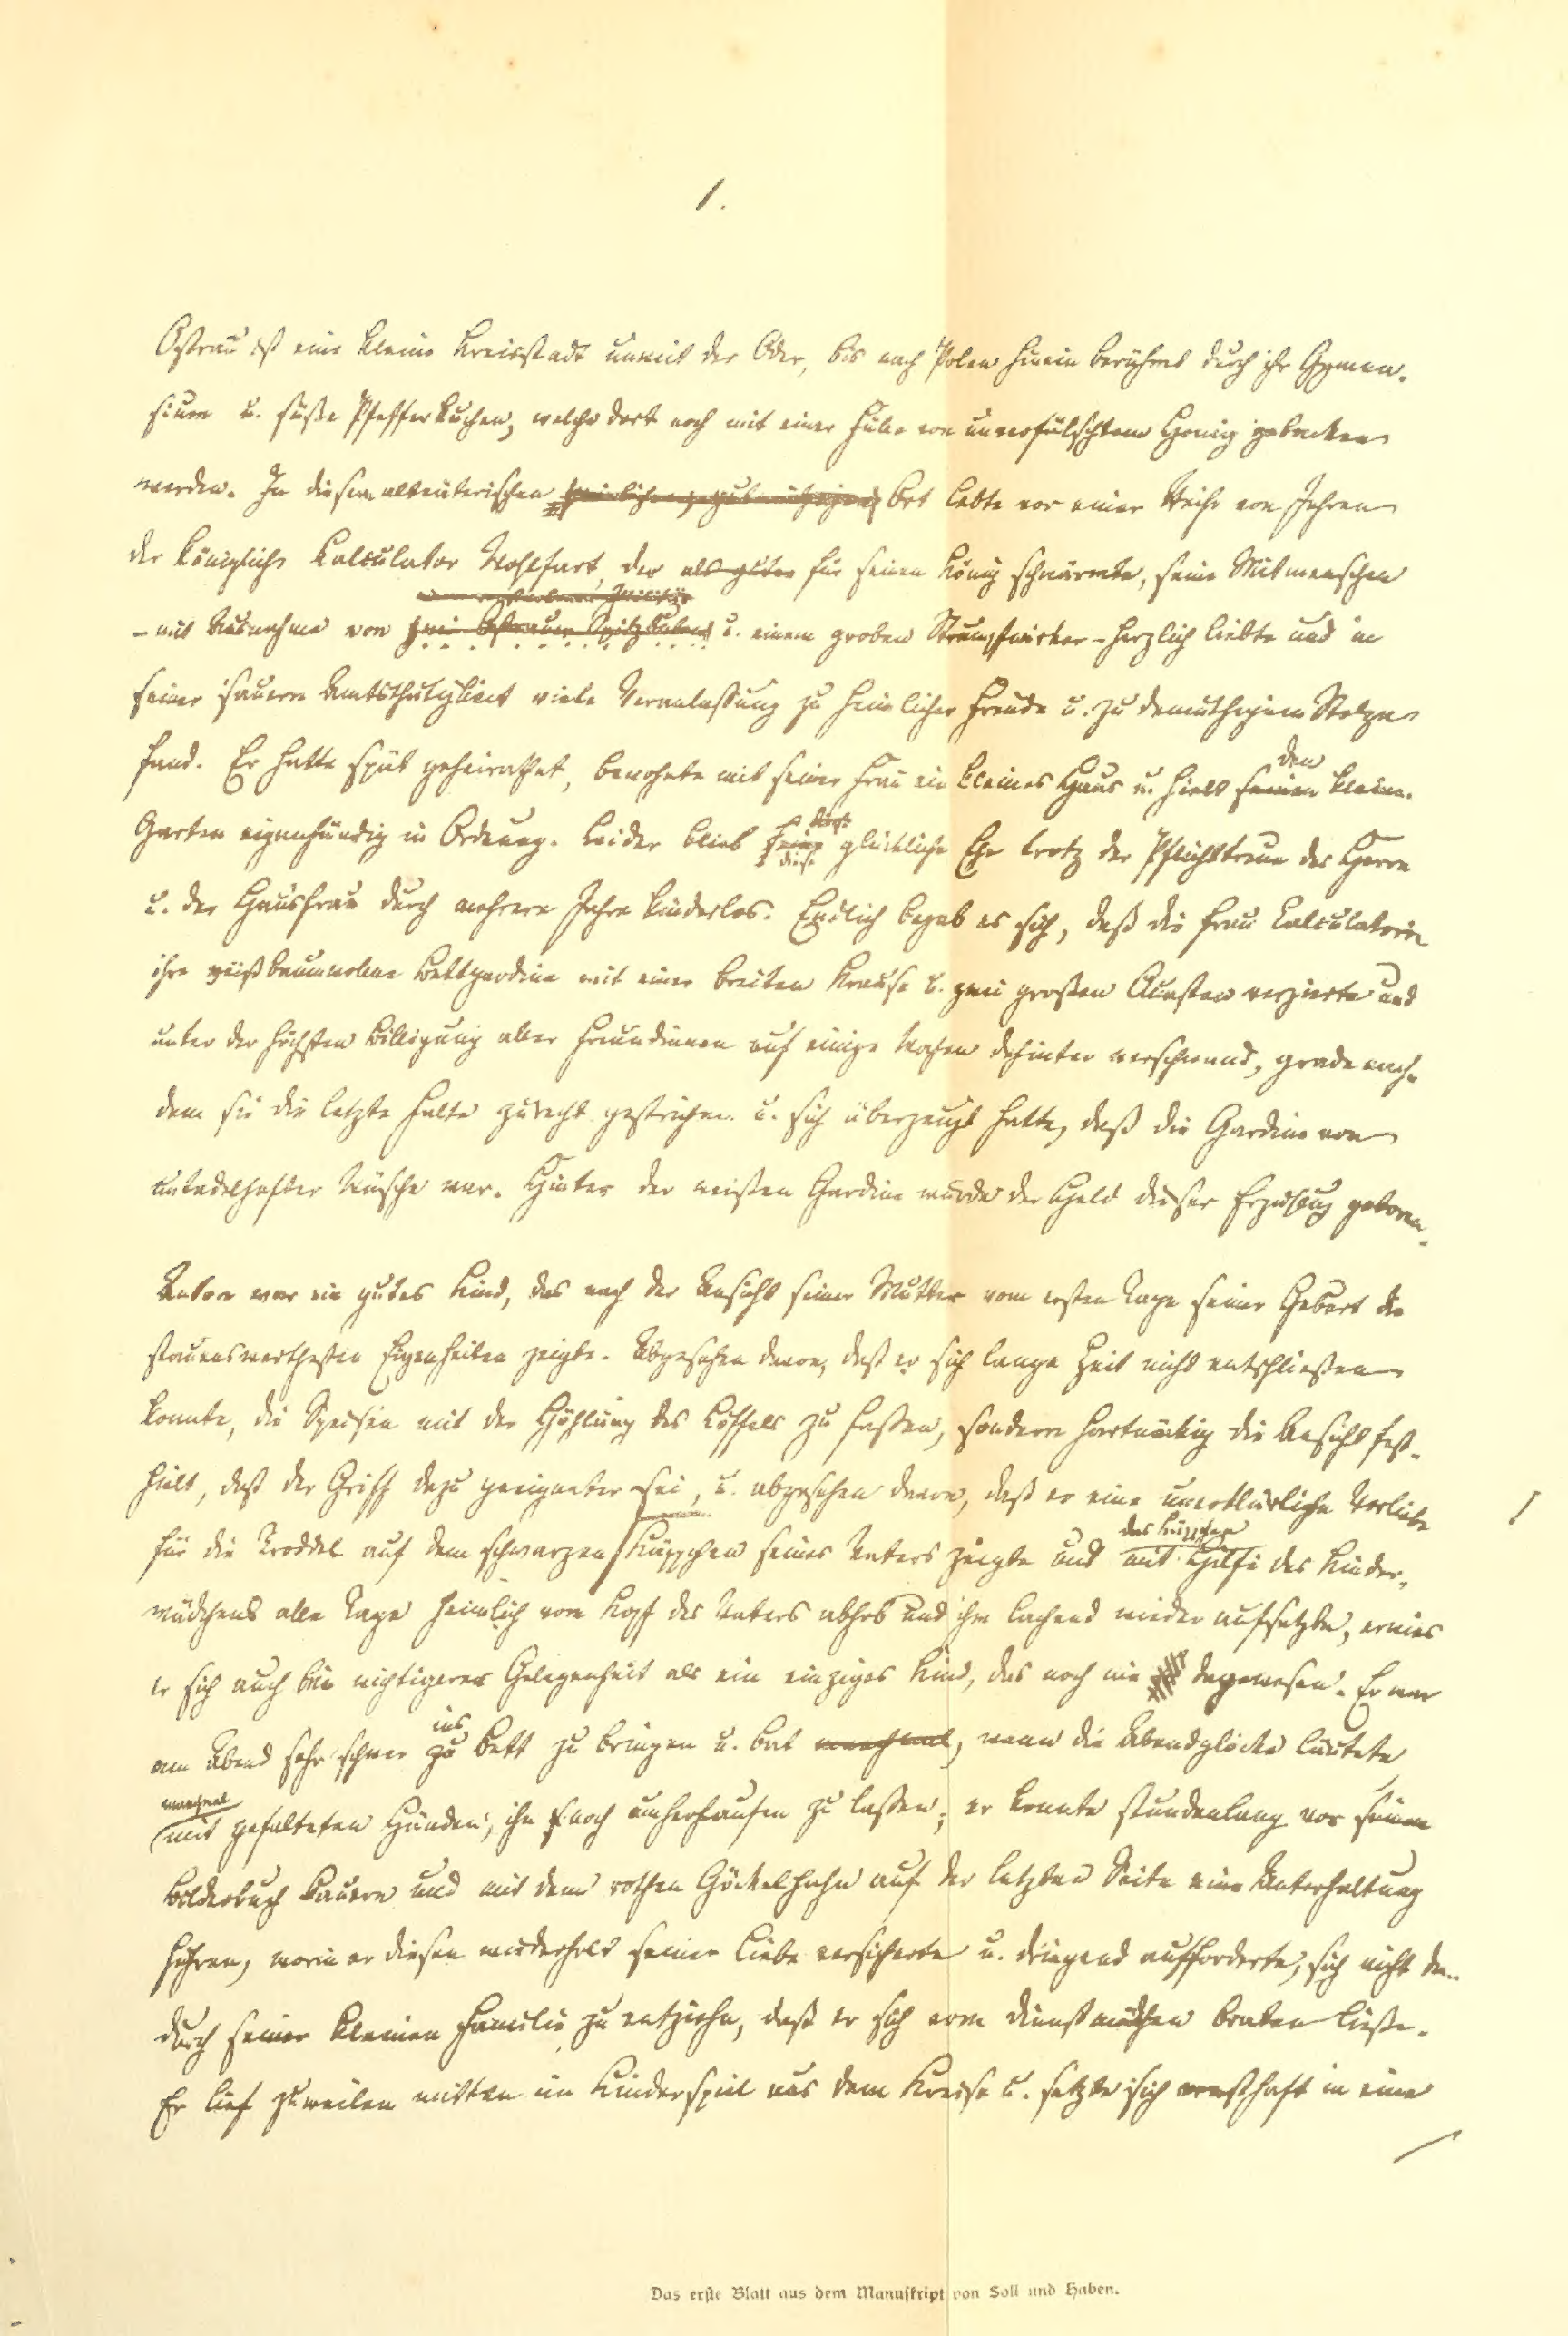 1.
Ostrau ist eine kleine Kreisstadt unweit der Oder, bis nach Polen hinein berühmt durch ihr Gymna-
sium u. süße Pfefferkuchen, welche dort noch mit einer Fülle von unverfälschtem Honig gebacken
werden. In diesem altväterischen Ort lebte vor einer Reihe von Jahren
der königliche Kalculator Wohlfart, der als guter für seinen König schwärmte, seine Mitmenschen
– mit Ausnahme von zwei Ostrauer Spitzbuben u. einem groben Strumpfwirker – herzlich liebte und in
seiner sauern Amtsthätigkeit viele Veranlassung zu heimlicher Freude u. zu demüthigem Stolze
den
fand. Er hatte spät geheirathet, bewohnte mit seiner Frau ein kleines Haus u. hielt seinen kleinen
Garten eigenhändig in Ordnung. Leider blieb seine glückliche Ehe trotz der Pflichttreue des Herrn
diese
u. der Hausfrau durch mehrere Jahre kinderlos. Endlich begab es sich, daß die Frau Calculatorin
ihre weißbaumwollne Bettgardine mit einer breiten Krause u. zwei großen Quasten verzierte und
unter der höchsten Billigung aller Freundinnen auf einige Wochen dahinter verschwand, grade nach-
dem sie die letzte Falte zurecht gestrichen u. sich überzeugt hatte, daß die Gardine von
untadelhafter Wäsche war. Hinter der weißen Gardine wurde der Held dieser Erzählung geboren.
Anton war ein gutes Kind, das nach der Ansicht seiner Mutter vom ersten Tage seiner Geburt die
staunenswerthesten Eigenheiten zeigte. Abgesehen davon, daß er sich lange Zeit nicht entschließen
konnte, die Speisen mit der Höhlung des Löffels zu fassen, sondern hartnäckig die Ansicht fest-
hielt, daß der Griff dazu geeigneter sei, u. abgesehen davon, daß er eine unerklärliche Vorliebe
das Käppchen
für die Troddel auf dem schwarzen Käppchen seines Vaters zeigte und mit Hilfe des Kinder-
mädchens alle Tage heimlich vom Kopf des Vaters abhob und ihm lachend wieder aufsetzte, erwies
er sich auch bei wichtigerer Gelegenheit als ein einziges Kind, das noch nie dagewesen. Er war
ins
am Abend sehr schwer zu Bett zu bringen u. bat manchmal, wenn die Abendglocke läutete
manchmal
mit gefalteten Händen, ihn noch umherlaufen zu lassen; er konnte stundenlang vor seinem
Bilderbuch kauern und mit dem rothen Göckelhahn auf der letzten Seite eine Unterhaltung
führen, worin er diesen wiederholt seiner Liebe versicherte u. dringend aufforderte, sich nicht da-
durch seiner kleinen Familie zu entziehn, daß er sich vom Dienstmädchen braten ließe.
Er lief zuweilen mitten im Kinderspiel aus dem Kreise u. setzte sich ernsthaft in eine
Das erste Blatt aus dem Manuskript von Soll und Haben.